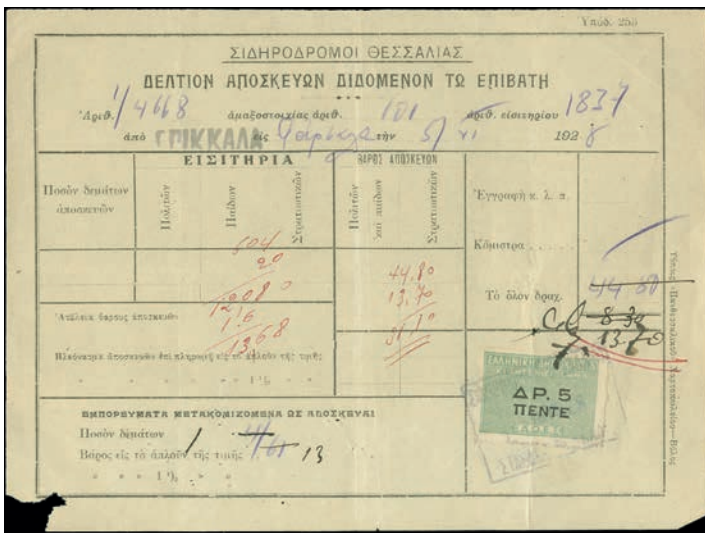 Υπόδ. 255
ΣΙΔΗΡΟΔΡΟΜΟΙ ΘΕΣΣΑΛΙΑΣ
ΔΕΛΤΙΟΝ ΑΠΟΣΚΕΥΩΝ ΔΙΔΟΜΕΝΟΝ ΤΩ ΕΠΙΒΑΤΗ
Ἀριθ. 1/4668 ἁμαξοστοιχίας ἀριθ. 101 ἀριθ. εἰσιτηρίου 1837
ἀπὸ ΤΡΙΚΚΑΛΑ εἰς Φάρσαλα τὴν 5/XI 1928
ΕΙΣΙΤΗΡΙΑ
ΒΑΡΟΣ ΑΠΟΣΚΕΥΩΝ
Ποσὸν δεμάτων ἀποσκευῶν
Πολιτῶν
Παίδων
Στρατιωτικῶν
Πολιτῶν καὶ παίδων
Στρατιωτικῶν
Ἐγγραφὴ κ. λ. π.
Κόμιστρα
Τὸ ὅλον δραχ. 44 80
8 30
13.70
604
20
12080
1.6
1368
44.80
13.70
Ἀτέλεια βάρους ἀποσκευῶν
Πλεόνασμα ἀποσκευῶν ἐπὶ πληρωμῇ εἰς τὸ ἁπλοῦν τῆς τιμῆς
» » » » 1 ½ » »
ΕΛΛΗΝΙΚΗ
ΔΡ. 5
ΠΕΝΤΕ
ΕΜΠΟΡΕΥΜΑΤΑ ΜΕΤΑΚΟΜΙΖΟΜΕΝΑ ΩΣ ΑΠΟΣΚΕΥΑΙ
Ποσὸν δεμάτων
Βάρος εἰς τὸ ἁπλοῦν τῆς τιμῆς 13
» » » 1 ½ » »